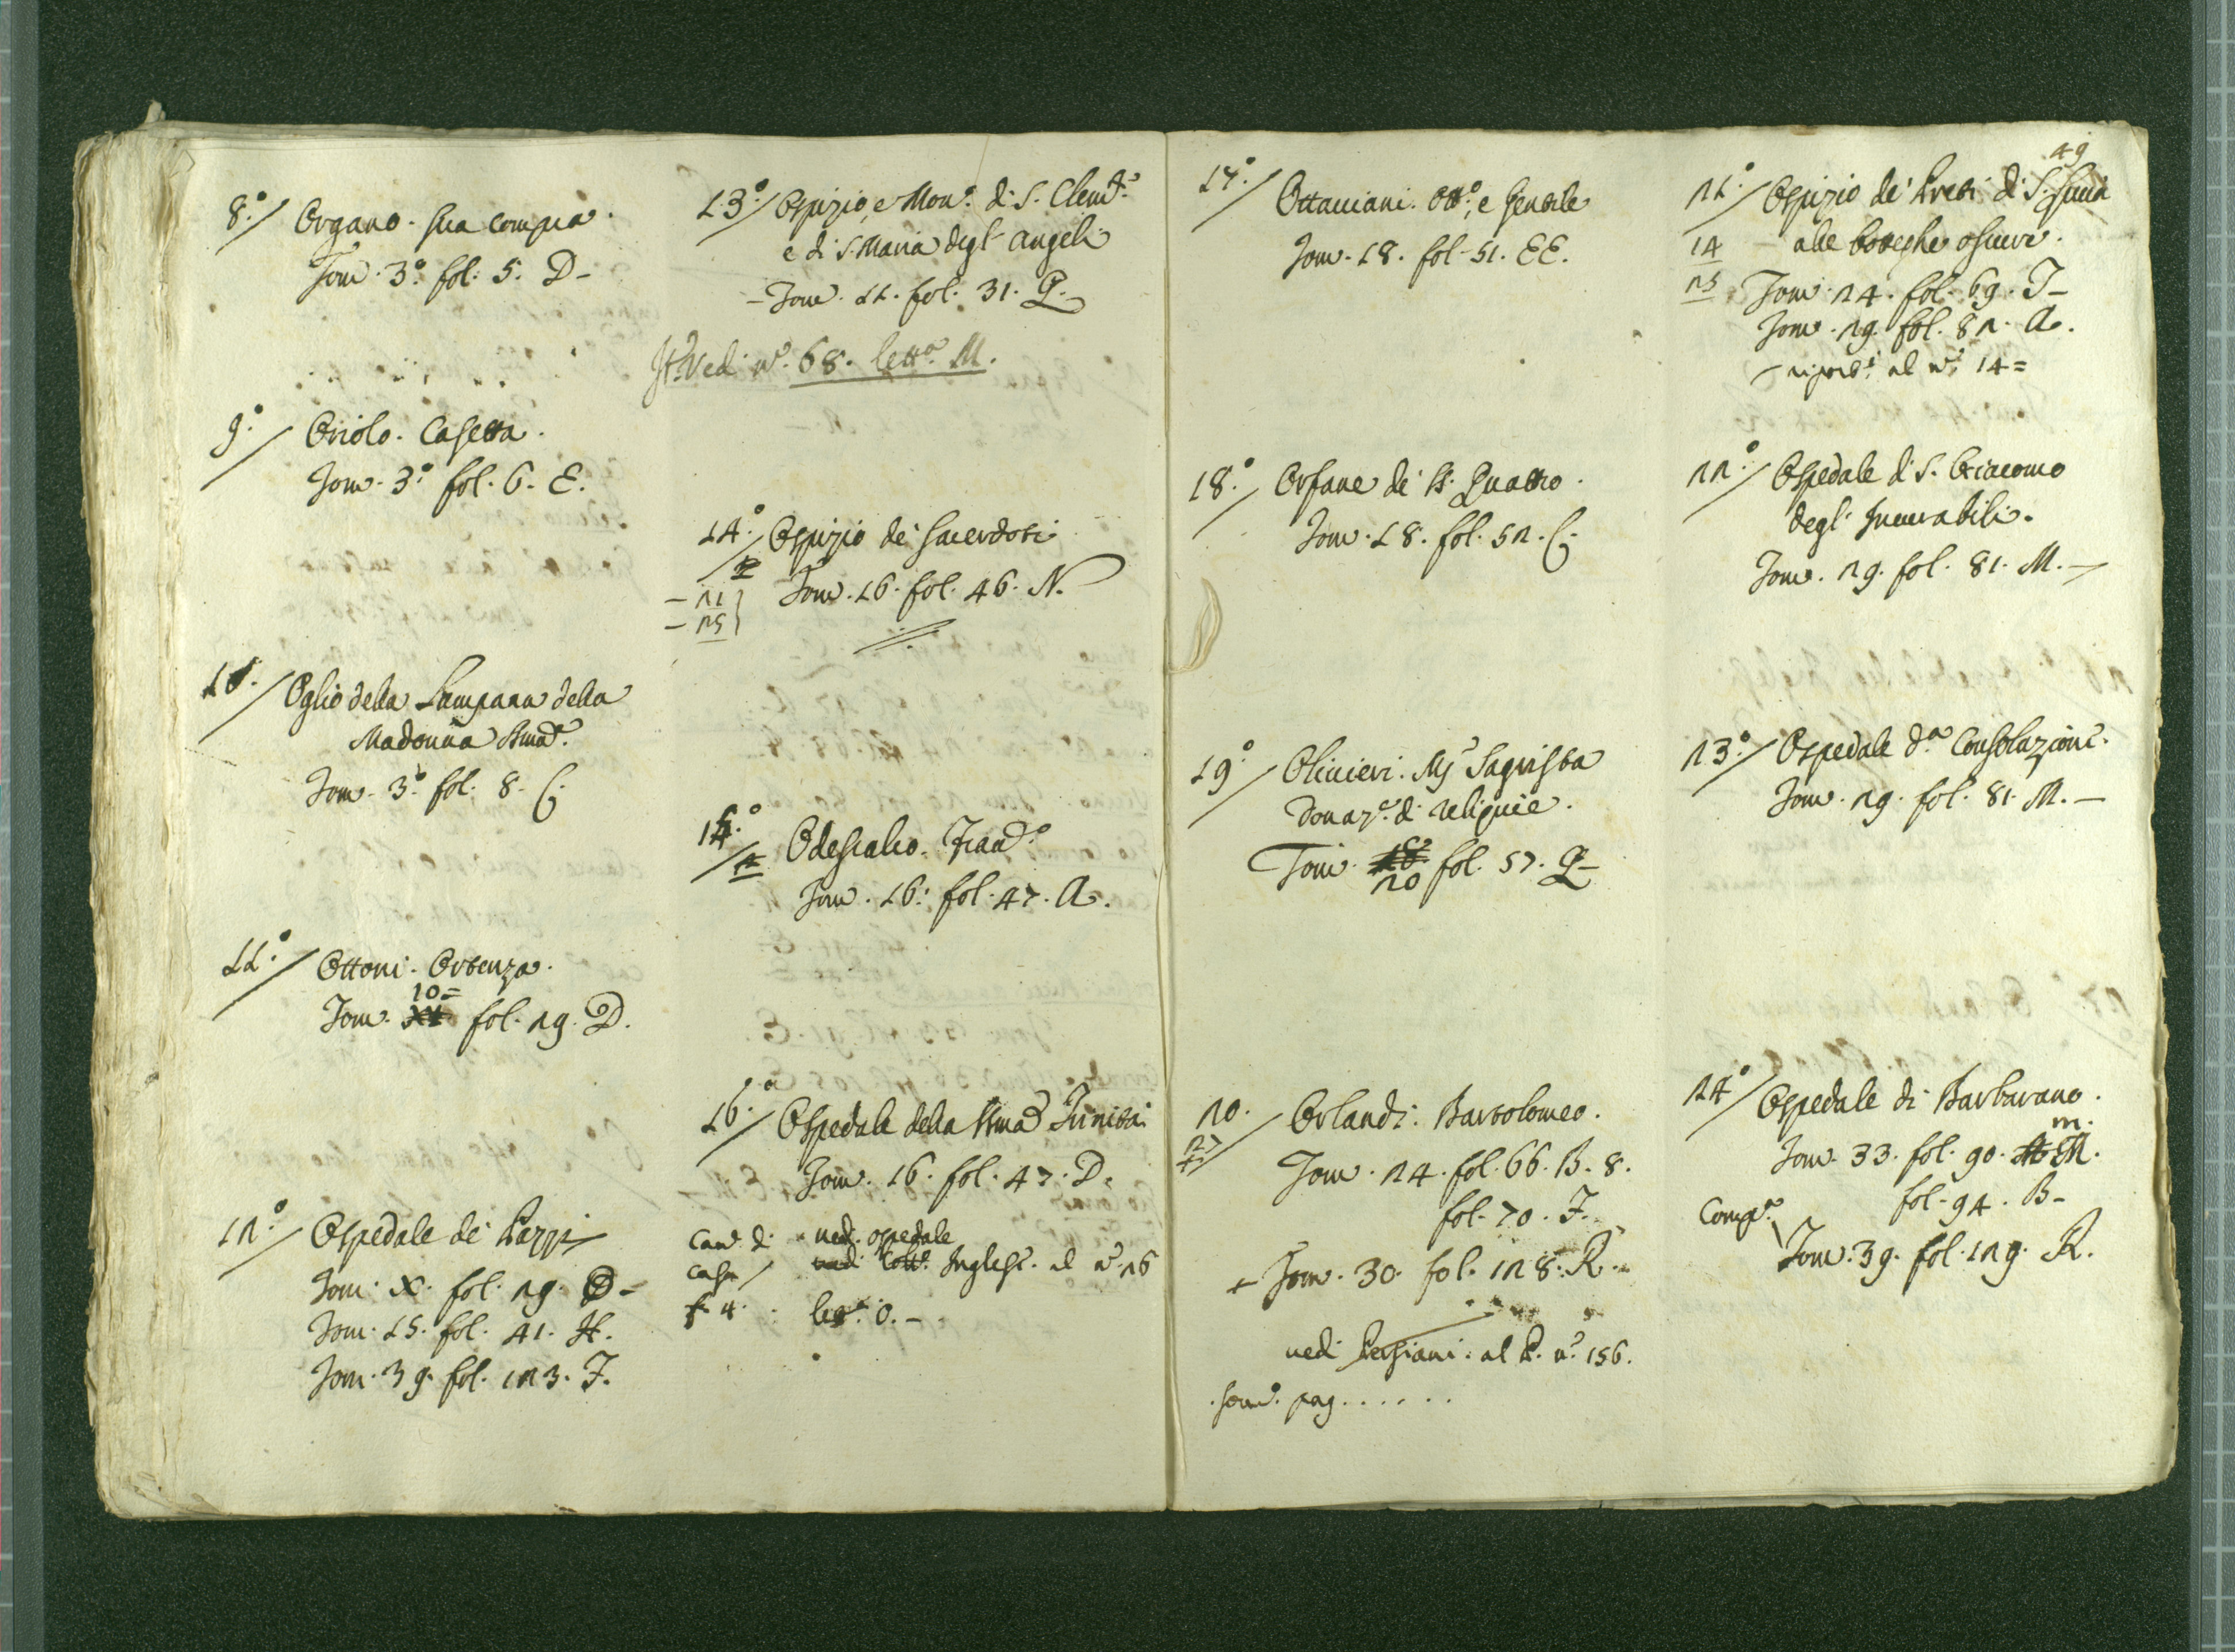 8.°/ Organo. sua compra.
Tom. 3.° fol. 5. D-
9.°/ Oriolo. Casetta.
Tom. 3.° fol. 6. E.
10./ Oglio della Lampana della
Madonna SSma.
Tom. 3.° fol. 8. C.
11.°/ Ottoni. Ortenza.
10=
Tom. XI fol. 29. D.
12.°/ Ospedale de' Pazzi
Tom. X. fol. 29. D-
Tom. 15. fol. 41. H.
Tom. 39. fol. 123. F.
13.°/ Ospizio, e Mon.° di S. Clem.te
e di S. Maria degl' Angeli
- Tom. 11. fol. 31. Q.
It. Vedi n.° 68. lett.a M.
14.°/ Ospizio de' Sacerdoti
2
- 21 Tom. 16. fol. 46. N.
- 25
15.°/ Odescalco. Fran.co
Tom. 16. fol. 47. A.
16.°/ Ospedale della SSma Trinità
Tom. 16. fol. 47. D.
Can. di vedi ospedale
casa / vedi Coll.° Inglese. al n.° 26
f. 4. lett.a O. -
49
17.°/ Ottaviani. Ott.°, e Gentile
Tom. 18. fol. 51. EE.
18.°/ Orfane de' SS. Quattro.
Tom. 18. fol. 52. C.
19.°/ Olivieri. Mg.r Sagrista
Donaz.e di reliquie.
Tom. 18 fol. 57. Q-
20
20./ Orlandi. Bartolomeo.
27
Tom. 24. fol. 66. B. 8.
fol. 70. F.
+ Tom. 30. fol. 128. R.
vedi Persiani. al P. n.° 156.
som.° pag......
21.°/ Ospizio de' Preti di S. Lucia
14 - alle botteghe oscure.
25 Tom. 24. fol. 69. I-
Tom. 29. fol. 82. A.
- riport.° al n.° 14=
22.°/ Ospedale di S. Giacomo
degl' Incurabili.
Tom. 29. fol. 81. M. -
23.°/ Ospedale d.a Consolazione.
Tom. 29. fol. 81. M. -
24.°/ Ospedale di Barbarano.
m.
Tom. 33. fol. 90. M.
fol. 94. B-
Comp.a
Tom. 39. fol. 129. R.